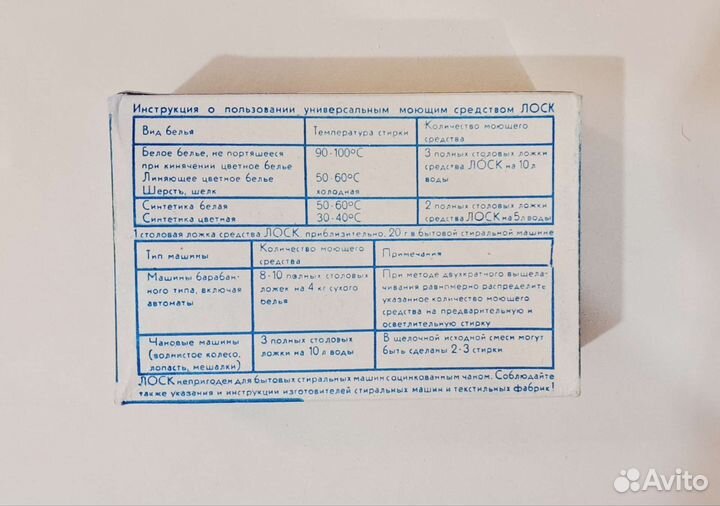 Инструкция о пользовании универсальным моющим средством ЛОСК
Вид белья Температура стирки Количество моющего
средства
Белое белье, не портящееся 90-100°C 3 полных столовых ложки
при кинячении цветное белье средства ЛОСК на 10л
Линяющее цветное белье 50-60°C воды
Шерсть, шелк холодная
Синтетика белая 50-60°C 2 полных столовых ложки
Синтетика цветная 30-40°C средства ЛОСК на 5л воды
1 столовая ложка средства ЛОСК приблизительно, 20 г в бытовой стиральной машине
Тип машины Количество моющего Примечания
средства
Машины барабан- 8-10 полных столовых При методе двухкратного выщела-
ного типа, включая ложек на 4 кг сухого чивания равномерно распределить
автоматы белья указанное количество моющего
средства на предварительную и
осветлительную стирку
Чановые машины 3 полных столовых В щелочной исходной смеси могут
(волнистое колесо, ложки на 10 л воды быть сделаны 2-3 стирки
лопасть, мешалки)
ЛОСК непригоден для бытовых стиральных машин с оцинкованным чаном. Соблюдайте
также указания и инструкции изготовителей стиральных машин и текстильных фабрик!
Avito